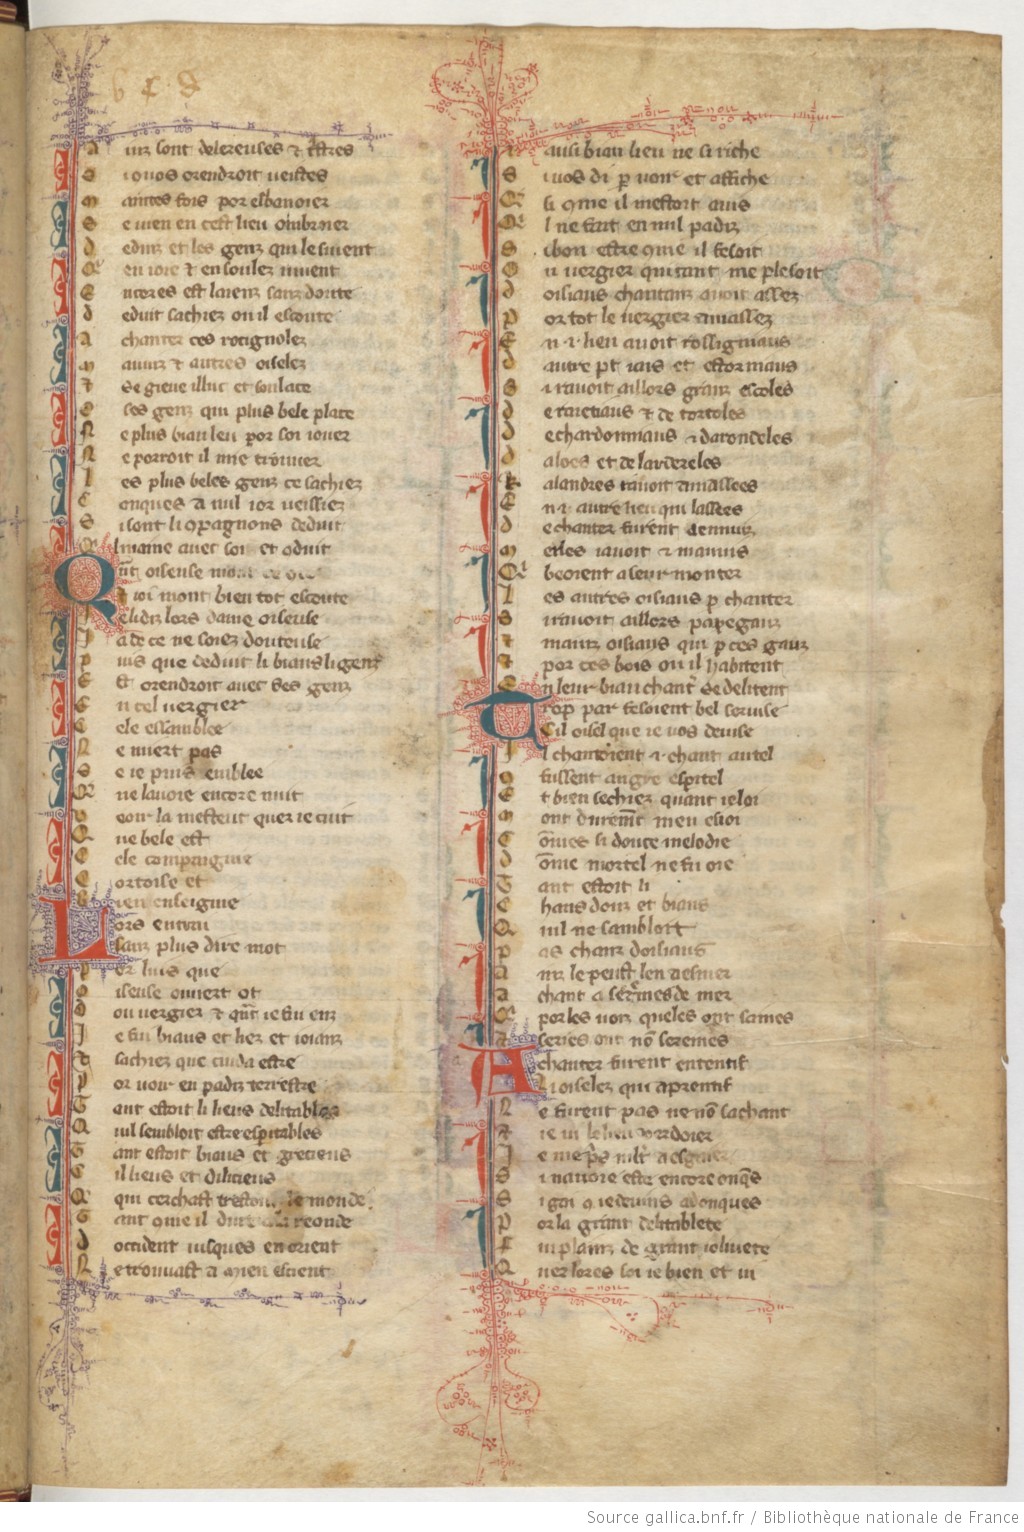 A inz sont delereuses et estres
S i o vos orendroit ueistes
M aintes fois por esbanoier
S e uien en cest lieu ombroier
D eduiz et les genz qui le siuent
Q en ioie et en soulez uiuent
E ncores est laienz sanz doute
D eduit sachiez ou il escoute
A chanter ces rocignolez
M auuiz et autres oiselez
I se gieue illuc et soulace
E ses genz qui plus bele place
N e plus biau leu por soi iouer
N e porroit il mie trouuer
L es plus beles genz ce sachiez
C onques a nul ior ueissiez
S i sont li compagnons deduit
Q l maine auec soi et conduit
Quant oiseuse mont
Et ioi mont bien tot escoute
I e li diz lors dame oiseuse
J a de ce ne soiez douteuse
P uis que deduit li biaus li genz
E st orendroit auec ses genz
E n cel uergier
C ele essamblee
N e mert pas
S e ie puis emblee
Q ne la uoie encore nuit
V eoir la mesteut quer ie cuit
Q ue bele est
C ele compaignie
C ortoise et
B ien enseignie
Lors entrai
Sanz plus dire mot
P er luis que
O iseuse ouuert ot
O ou uergier et quant ie fui enz
J e fui biaus et liez et ioianz
E sachiez que cuidai estre
P or uoir en paradiz terrestre
T ant estoit li lieus delitables
Q uil sembloit estre esperitables
T ant estoit biaus et grecieus
C il lieus et dilicieus
Q qui cerchast trestout le monde
T ant com il dure a la reonde
D occident iusques en orient
N e trouuast a mien escient
N ausi biau lieu ne si riche
S i uos di por uoir et affiche
Q si come il mestoit auis
Q l ne fait en nul paradiz
S i bon estre come il fesoit
O u uergier qui tant me plesoit
D oisiaus chantanz auoit assez
P or tot le uergier amassez
E n .i. lieu auoit rossignaus
D autre part iais et estornaus
S i rauoit aillors granz escoles
D e raietiaus et de tortoles
D e chardonnaus et darondeles
D aloes et de lardereles
K alandres rauoit amassees
E n .i. autre lieu qui lassees
D e chanter furent a enuiz
M erles i auoit et mauuis
Q beoient a seurmonter
L es autres oisiaus par chanter
I rauoit aillors papegauz
E mainz oisiaus qui par ces gauz
E por ces bois ou il habitent
E n leur biau chanter se delitent
Trop par fesoient bel seruise
Cil oisel que ie uos deuise
I l chantoient .i. chant autel
C fussent angre esperitel
E t bien sechiez quant ie loi
M ont durement men esioi
C onques si douce melodie
D ome mortel ne fu oie
T ant estoit li
C hans douz et biaus
Q uil ne sambloit
P as chanz doisiaus
A inz le peust len aesmer
A chant a seraines de mer
Q por les uoiz queles ont saines
E series ont non seraines
A chanter furent ententif
Li oiselez qui aprentif
N e furent pas ne non sachant
ie ui le lieu uerdoier
J e me pris
S i nauoie este encore onques
S i gai com ie deuins adonques
P or la grant delitablete
F ui plainz de grant ioliuete
Q uer lores soi ie bien et ui